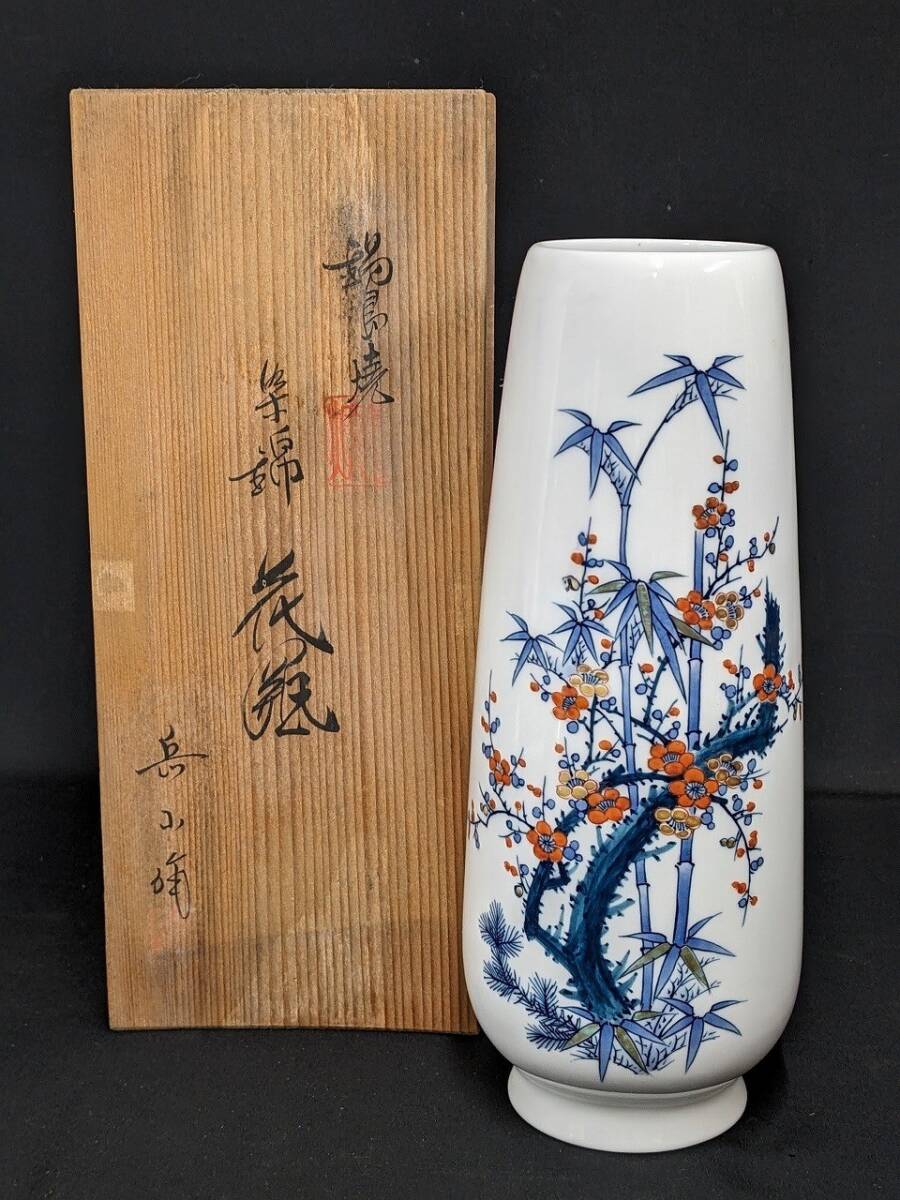 鍋島焼
染錦
花瓶
岳山